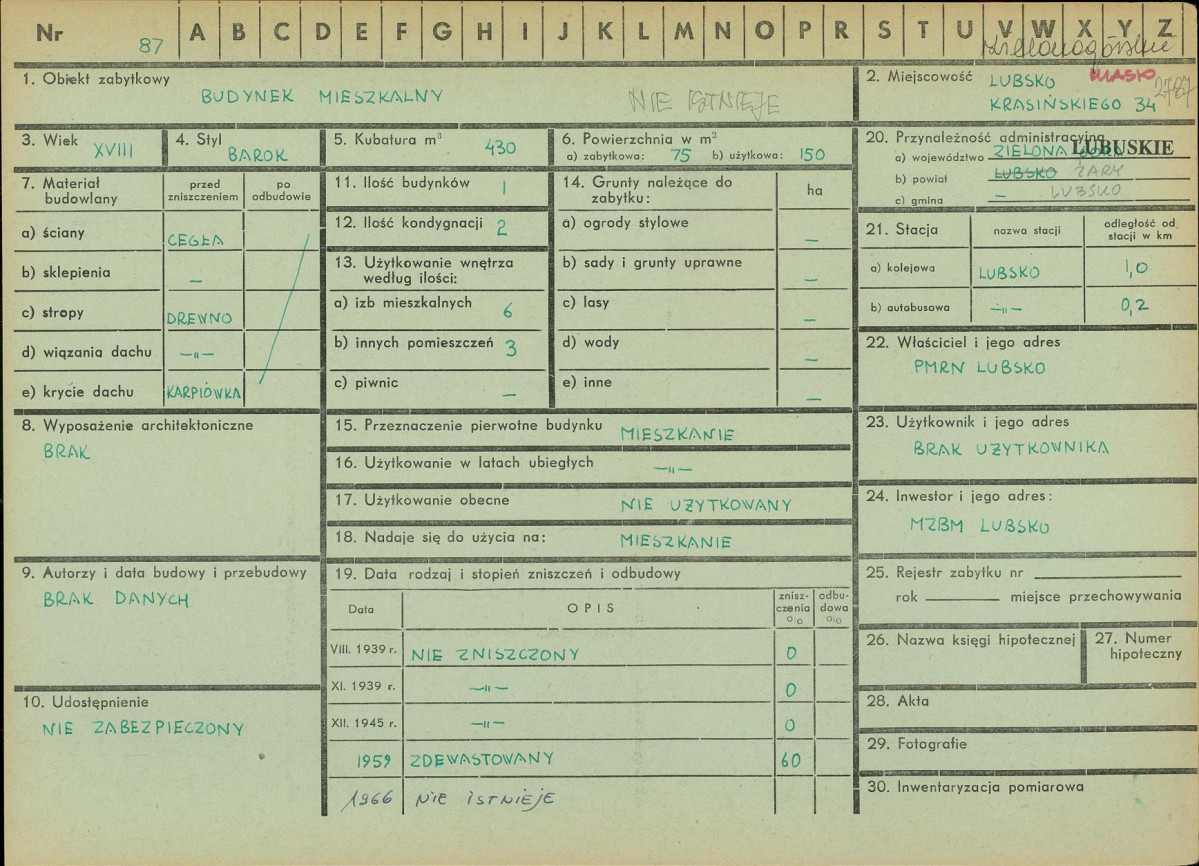 Nr 87 A B C D E F G H I J K L M N O P R S T U V W X Y Z
1. Obiekt zabytkowy
BUDYNEK MIESZKALNY
NIE ISTNIEJE
2. Miejscowość LUBSKO MIASTO
KRASIŃSKIEGO 34
2787
3. Wiek
XVIII
4. Styl
BAROK
5. Kubatura m³
430
6. Powierzchnia w m²
a) zabytkowa: 75 b) użytkowa: 150
20. Przynależność administracyjna
a) województwo ZIELONA LUBUSKIE
b) powiat LUBSKO ŻARY
c) gmina – LUBSKO
7. Materiał budowlany
przed zniszczeniem
po odbudowie
a) ściany CEGŁA
b) sklepienia –
c) stropy DREWNO
d) wiązania dachu –„–
e) krycie dachu KARPIÓWKA
11. Ilość budynków 1
12. Ilość kondygnacji 2
13. Użytkowanie wnętrza
według ilości:
a) izb mieszkalnych 6
b) innych pomieszczeń 3
c) piwnic –
14. Grunty należące do
zabytku:
ha
a) ogrody stylowe –
b) sady i grunty uprawne –
c) lasy –
d) wody –
e) inne –
21. Stacja
nazwa stacji
odległość od
stacji w km
a) kolejowa LUBSKO 1,0
b) autobusowa –„– 0,2
22. Właściciel i jego adres
PMRN LUBSKO
8. Wyposażenie architektoniczne
BRAK
15. Przeznaczenie pierwotne budynku MIESZKANIE
16. Użytkowanie w latach ubiegłych –„–
17. Użytkowanie obecne NIE UŻYTKOWANY
18. Nadaje się do użycia na: MIESZKANIE
23. Użytkownik i jego adres
BRAK UŻYTKOWNIKA
24. Inwestor i jego adres:
MZBM LUBSKO
9. Autorzy i data budowy i przebudowy
BRAK DANYCH
10. Udostępnienie
NIE ZABEZPIECZONY
19. Data rodzaj i stopień zniszczeń i odbudowy
Data
OPIS
znisz-
czenia
o|o
odbu-
dowa
o|o
VIII. 1939 r. NIE ZNISZCZONY 0
XI. 1939 r. –„– 0
XII. 1945 r. –„– 0
1959 ZDEWASTOWANY 60
1966 NIE ISTNIEJE
25. Rejestr zabytku nr
rok miejsce przechowywania
26. Nazwa księgi hipotecznej
27. Numer
hipoteczny
28. Akta
29. Fotografie
30. Inwentaryzacja pomiarowa